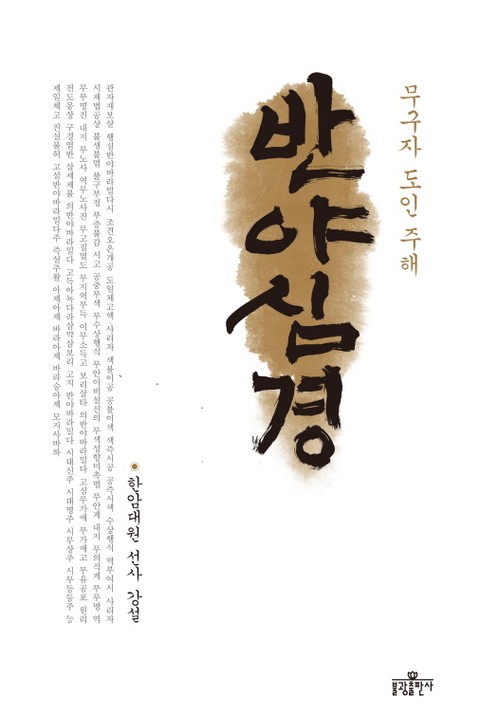 무구자 도인 주해
반야심경
관자재보살 행심반야바라밀다시 조견오온개공 도일체고액 사리자 색불이공 공불이색 색즉시공 공즉시색 수상행식 역부여시 사리자
시제법공상 불생불멸 불구부정 부증불감 시고 공중무색 무수상행식 무안이비설신의 무색성향미촉법 무안계 내지 무의식계 무무명 역
무무명진 내지 무노사 역무노사진 무고집멸도 무지역무득 이무소득고 보리살타 의반야바라밀다 고심무가애 무가애고 무유공포 원리
전도몽상 구경열반 삼세제불 의반야바라밀다 고득아뇩다라삼먁삼보리 고지 반야바라밀다 시대신주 시대명주 시무상주 시무등등주 능
제일체고 진실불허 고설반야바라밀다주 즉설주왈 아제아제 바라아제 바라승아제 모지사바하
한암대원 선사 강설
불광출판사